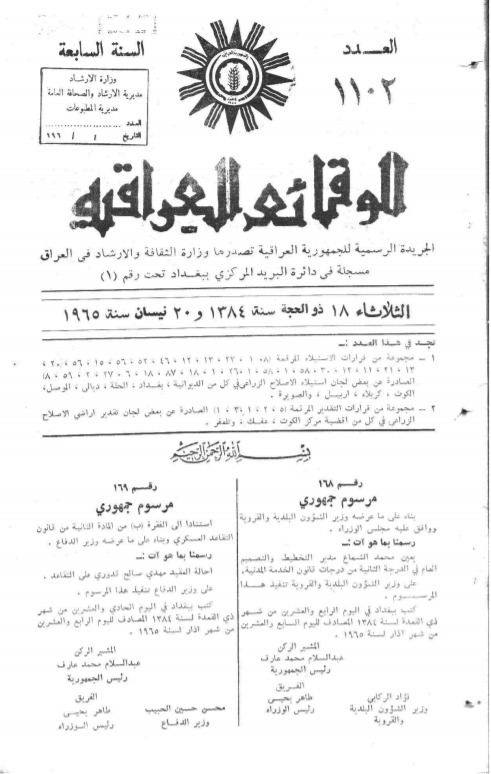 العـــدد
١١٠٢
السنة السابعة
وزارة الارشاد
مديرية الارشاد والصحافة العامة
مديرية المطبوعات
العدد
التاريخ / / ١٩٦
الوقائع العراقية
الجريدة الرسمية للجمهورية العراقية تصدرها وزارة الثقافة والارشاد في العراق
مسجلة في دائرة البريد المركزي ببغداد تحت رقم (١)
الثلاثاء ١٨ ذو الحجة سنة ١٣٨٤ و ٢٠ نيسان سنة ١٩٦٥
تجد في هذا العدد :ــ
١ ــ مجموعة من قرارات الاستيلاء المرقمة
الصادرة عن بعض لجان استيلاء الاصلاح الزراعي في كل من الديوانية ، بغداد ، الحلة ، ديالى ، الموصل ،
الكوت ، كربلاء ، اربيل ، والصويرة .
٢ ــ مجموعة من قرارات التقدير المرقمة الصادرة عن بعض لجان تقدير اراضي الاصلاح
الزراعي في كل من اقضية مركز الكوت ، عفك ،
بسم الله الرحمن الرحيم
رقم ١٦٨
مرسوم جمهوري
بناء على ما عرضه وزير الشؤون البلدية والقروية
ووافق عليه مجلس الوزراء .
رسمنا بما هو آت :ــ
يعين محمد الشماع مدير التخطيط والتصميم
العام في الدرجة الثانية من درجات قانون الخدمة المدنية .
على وزير الشؤون البلدية والقروية تنفيذ هــذا
المرســـوم .
كتب ببغداد في اليوم الحادي والعشرين من شــهر
ذي القعدة لسنة ١٣٨٤ المصادف لليوم الرابع والعشرين
من شهر اذار لسنة ١٩٦٥ .
المشير الركن
عبدالسلام محمد عارف
رئيس الجمهورية
الفــريق
طاهر يحيــى
رئيس الوزراء
فؤاد الركابي
وزير الشؤون البلدية
والقروية
رقم ١٦٩
مرسوم جمهوري
استنادا الى الفقرة (ب) من المادة الثانية من قانون
التقاعد العسكري وبناء على ما عرضه وزير الدفاع .
رسمنا بما هو آت :ــ
احالة العقيد مهدي صالح الدوري على التقاعد .
على وزير الدفاع تنفيذ هذا المرسوم .
كتب ببغداد في اليوم الحادي والعشرين من شهر
ذي القعدة لسنة ١٣٨٤ المصادف لليوم الرابع والعشرين
من شهر اذار لسنة ١٩٦٥ .
المشير الركن
عبدالسلام محمد عارف
رئيس الجمهورية
الفريق
طاهر يحيــى
رئيس الوزراء
محسن حسين الحبيب
وزير الدفاع